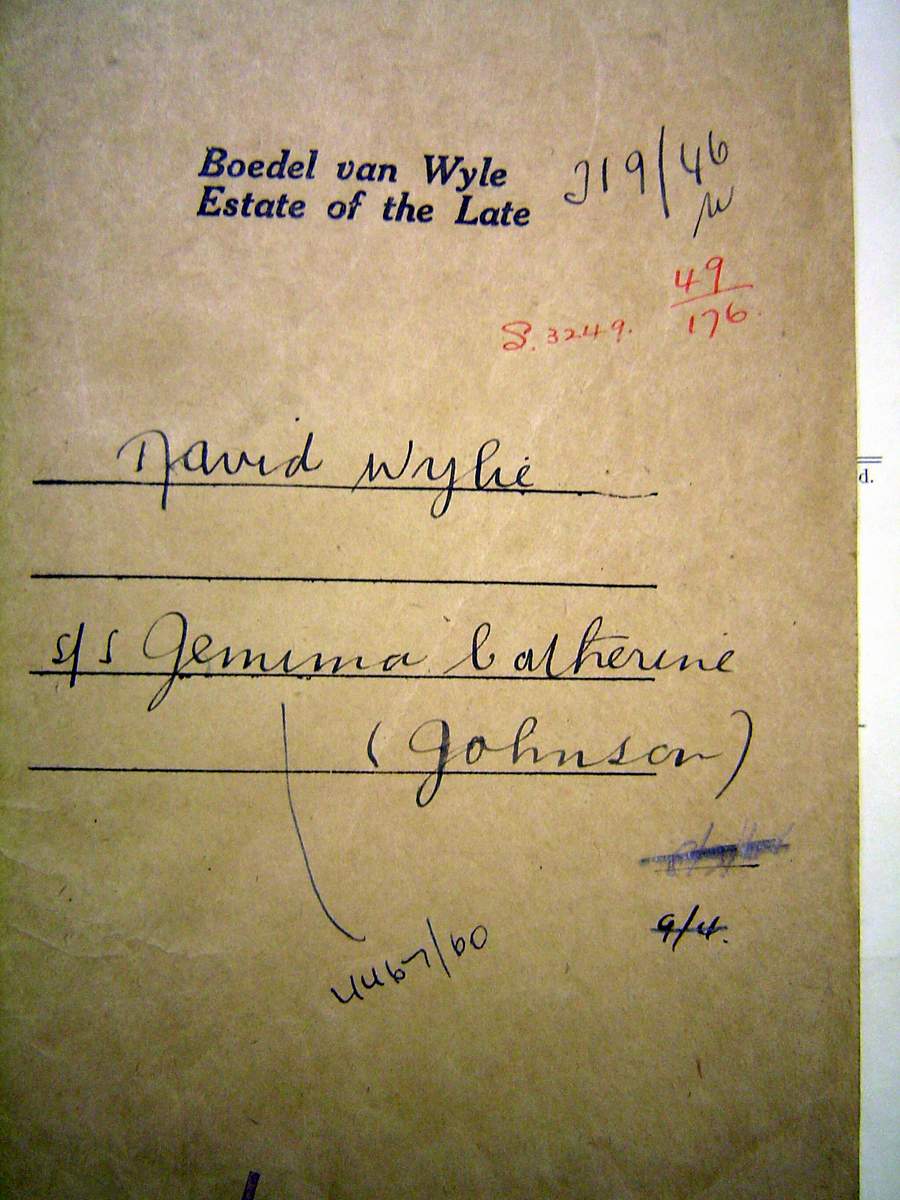 Boedel van Wyle
Estate of the Late
319/46
49
176.
S. 3249.
David Wylie
s/s Jemima Catherine
(Johnson)
9/4.
4467/60
d.